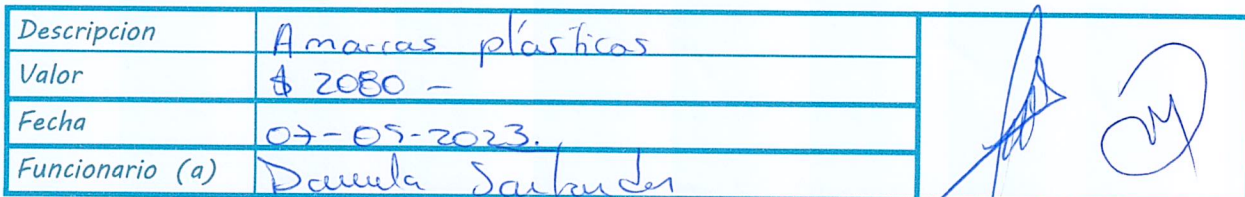 Descripcion Amarras plásticas
Valor $ 2080 -
Fecha 07-05-2023.
Funcionario (a) Daniela Santander